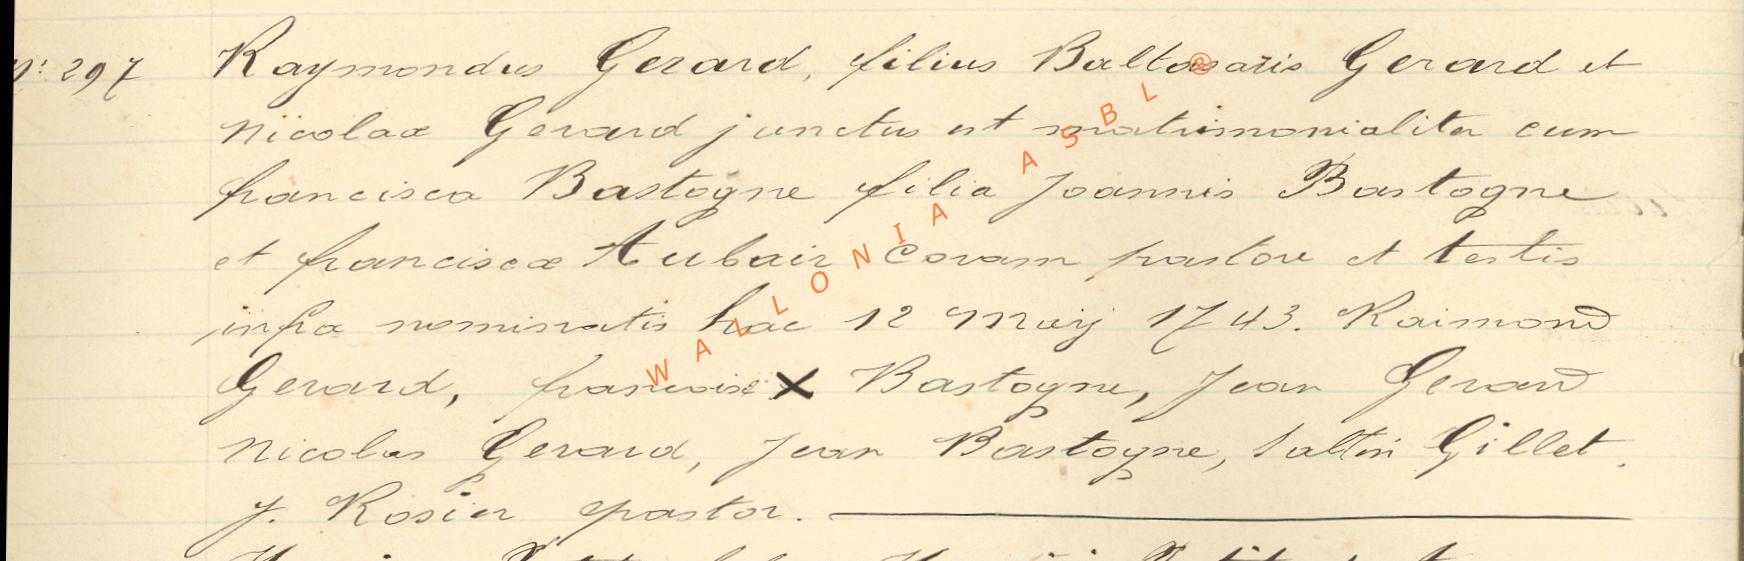 N: 297 Raymondus Gerard, filius Baltasaris Gerard et
Nicolaæ Gerard junctus est matrimonialiter cum
francisca Bastogne filia Joannis Bastogne
et franciscæ Aubair Coram pastore et testis
infra nominatis hac 12 Maij 1743. Raimond
Gerard, francoise X Bastogne, Jean Gerard
Nicolas Gerard, Jean Bastogne, Saltin Gillet.
J. Rosier pastor.
WALLONIA ASBL ®